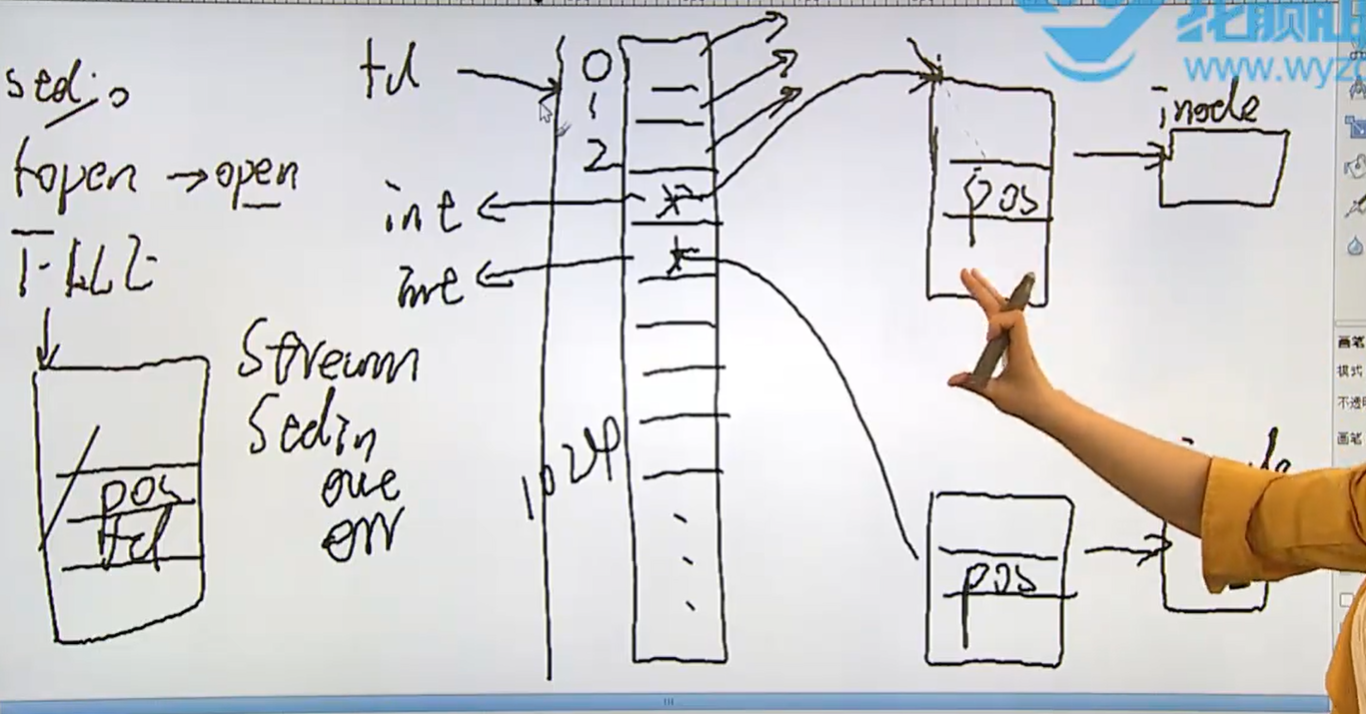 stdio
fopen → open
FILE
pos
fd
stream
stdin
out
err
fd
0
1
2
int
int
1024
*
*
pos
inode
pos
www.wyz
画笔
模式
画笔